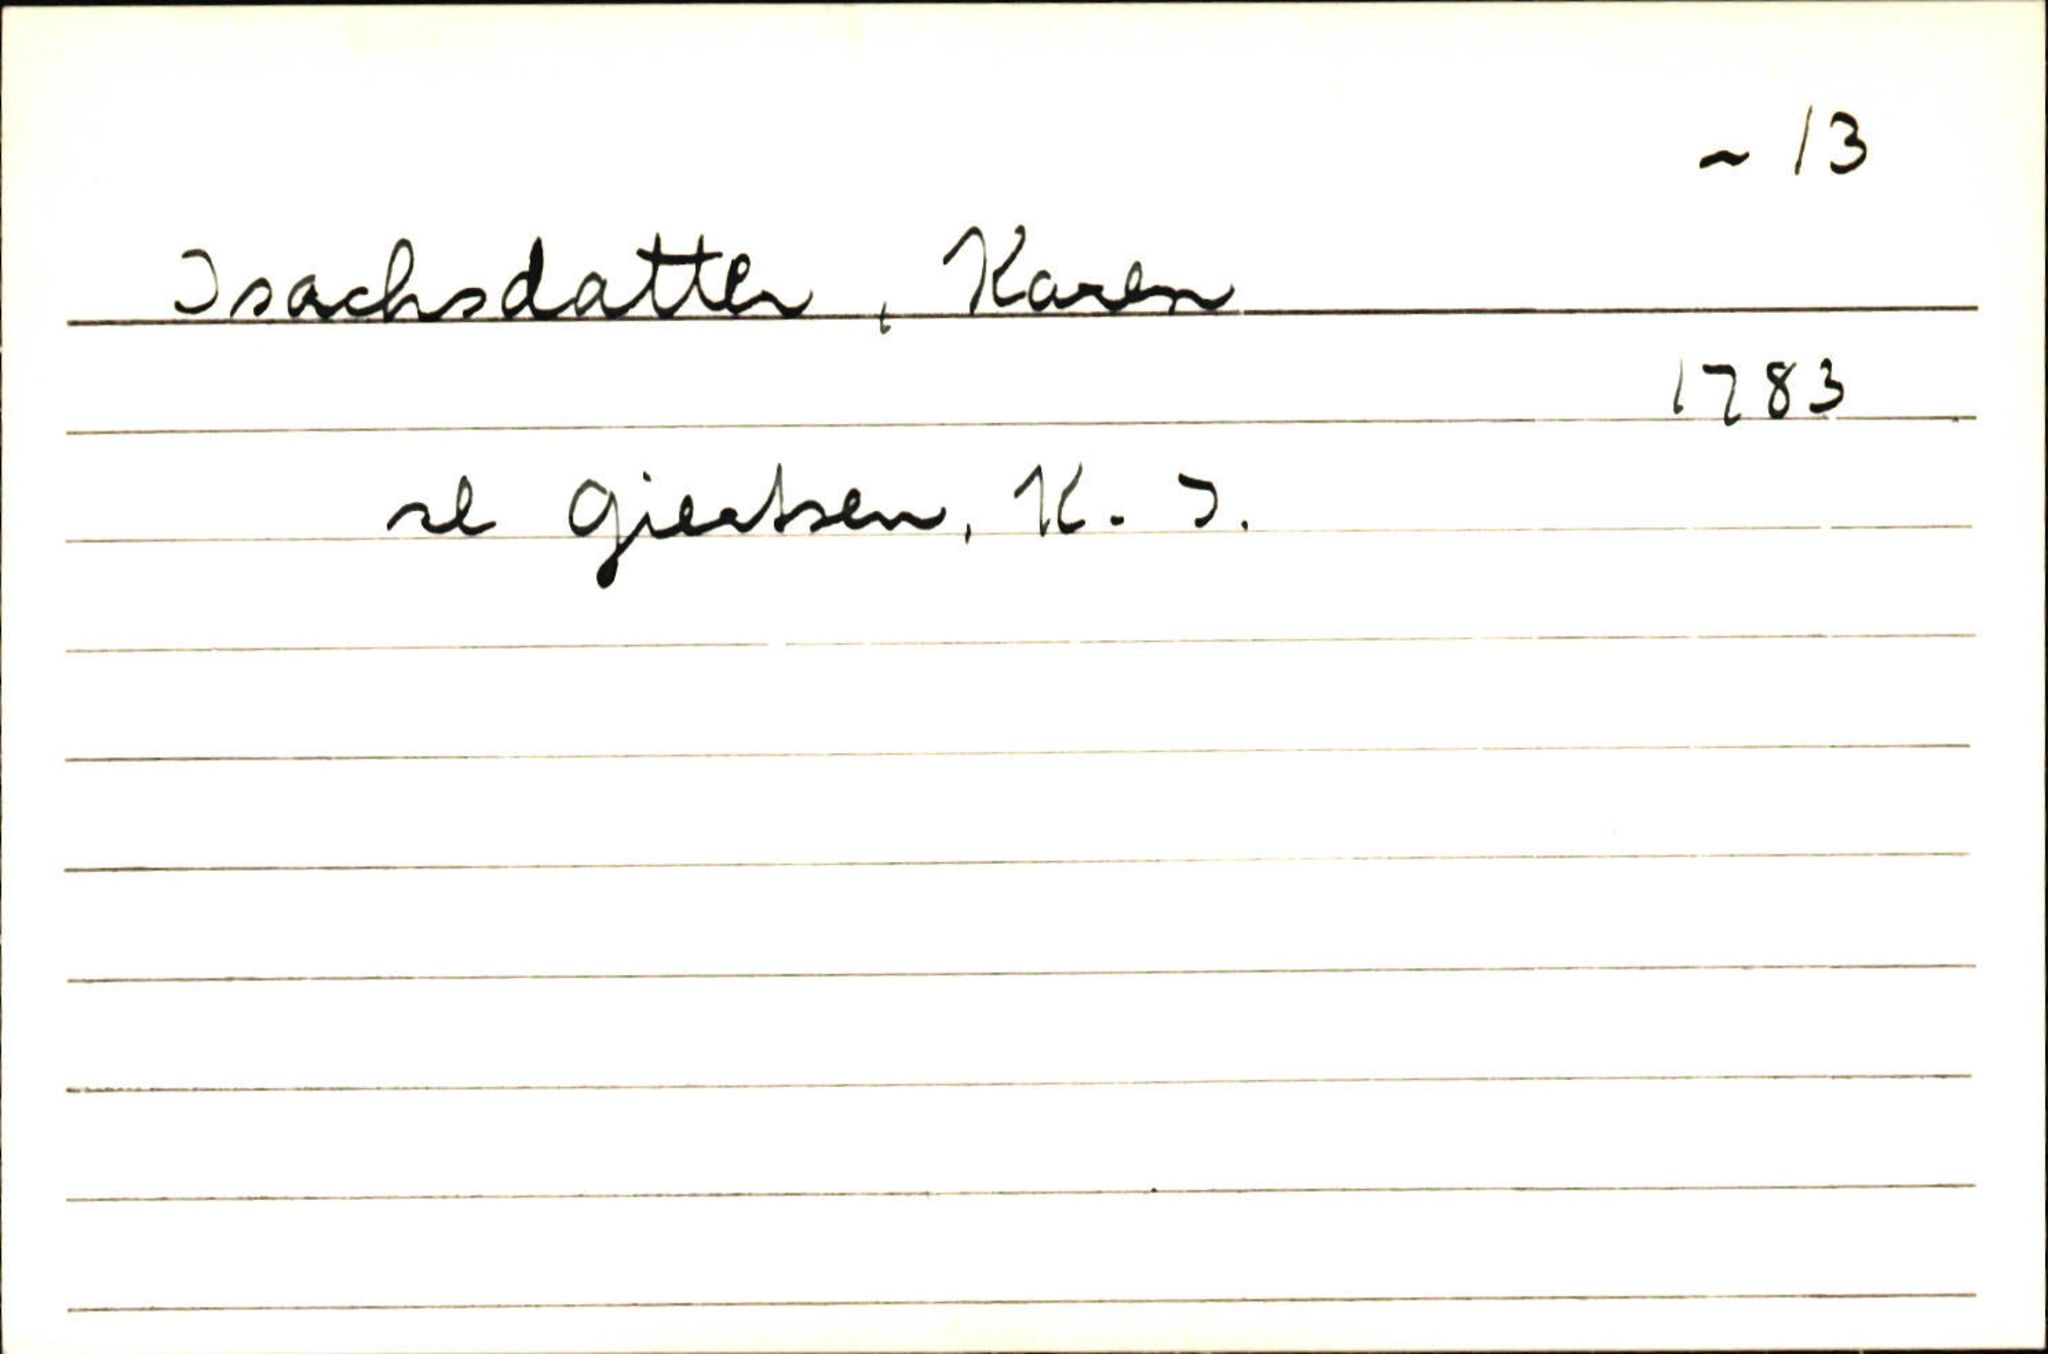 ~ 13
Isachsdatter, Karen
1783
se Giertsen, K. I.